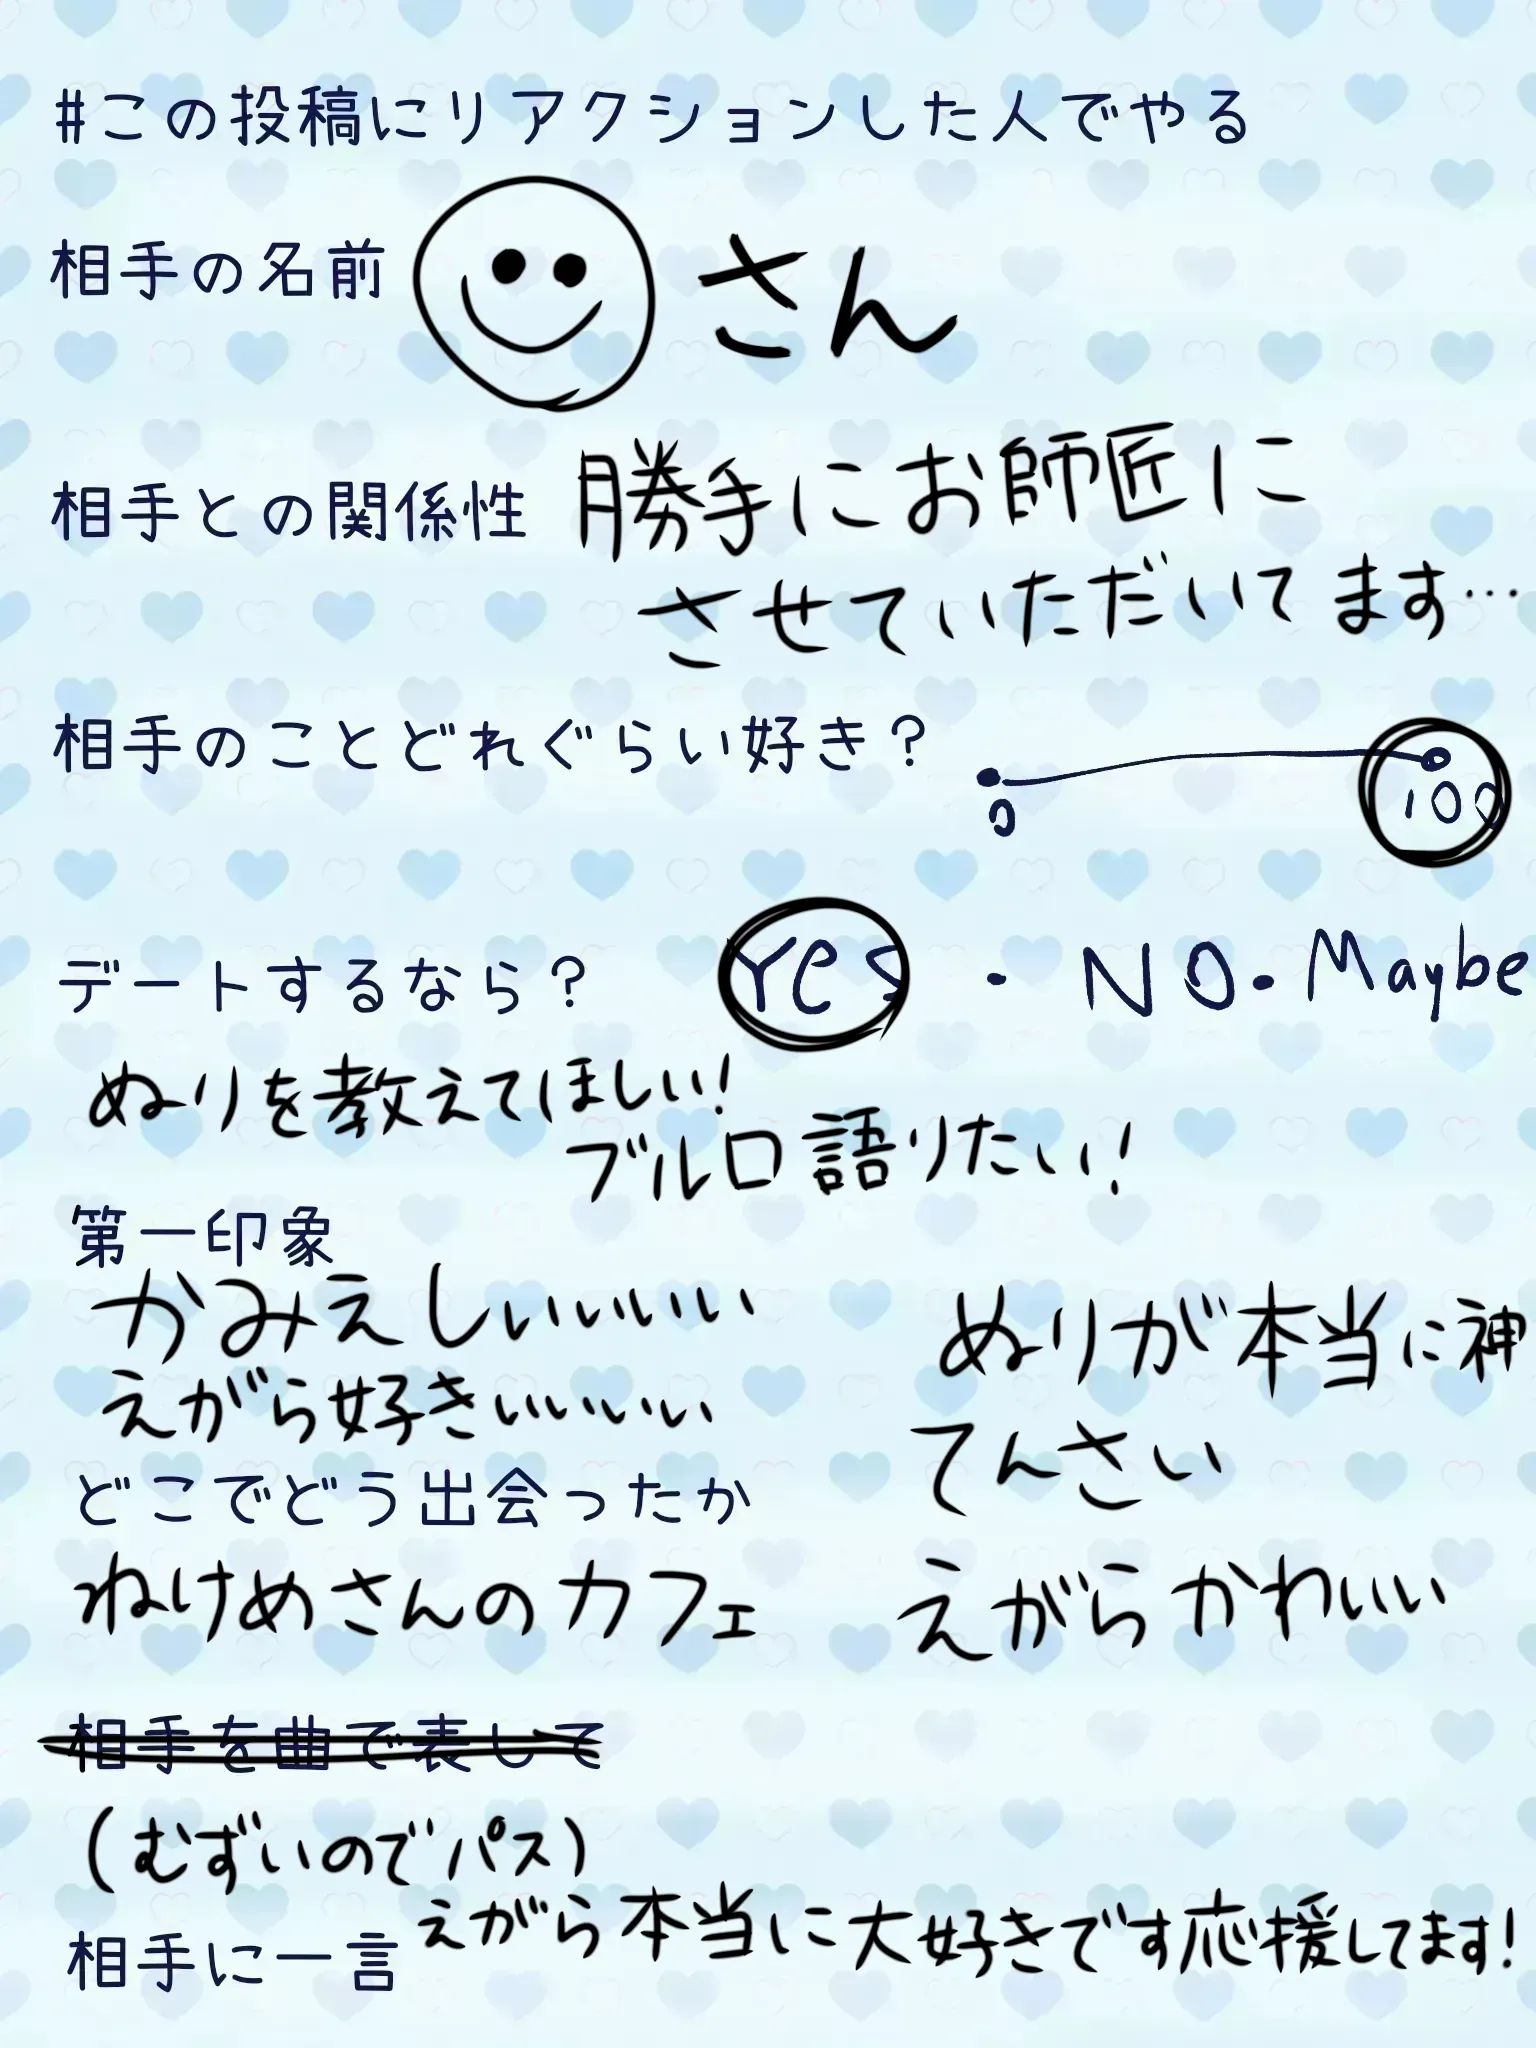 #この投稿にリアクションした人でやる
相手の名前 さん
相手との関係性 勝手にお師匠に
させていただいてます…
相手のことどれぐらい好き?
0 100
デートするなら? Yes・NO・Maybe
ぬりを教えてほしい!
ブルロ語りたい!
第一印象
かみえしぃぃぃぃぃ
えがら好きぃぃぃぃぃ
ぬりが本当に神
てんさい
えがらかわいい
どこでどう出会ったか
ねけめさんのカフェ
相手を曲で表して
(むずいのでパス)
相手に一言 えがら本当に大好きです応援してます!